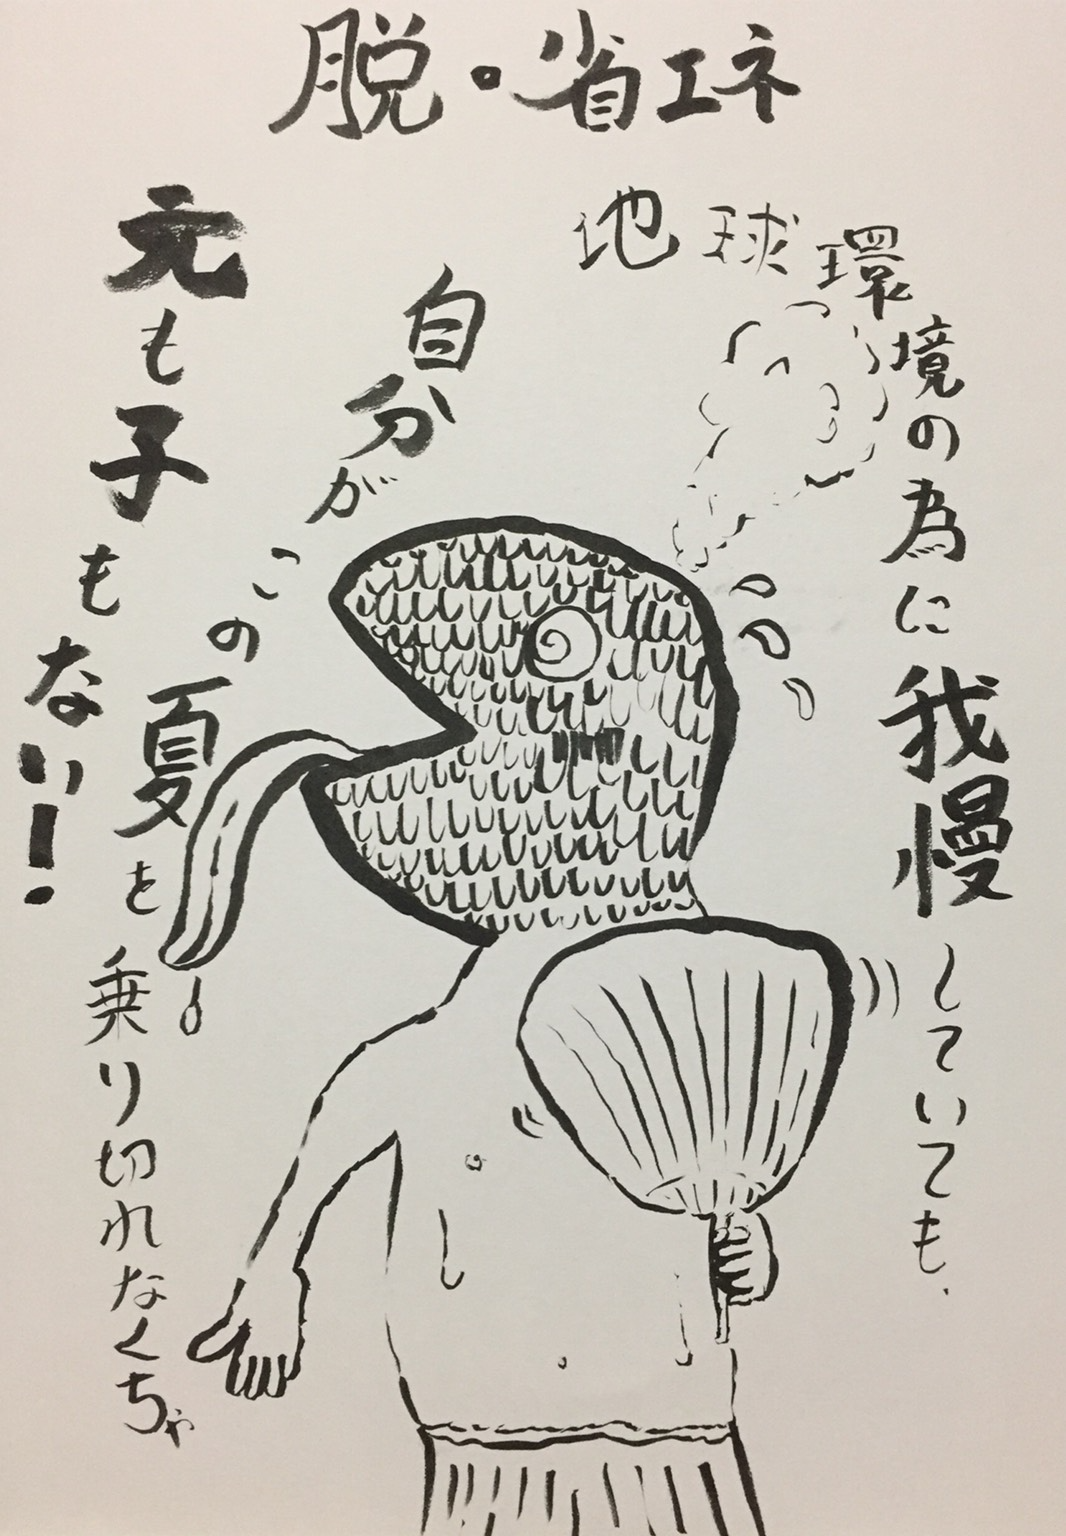 脱・省エネ
地球環境の為に我慢していても、
自分がこの夏を乗り切れなくちゃ
元も子もない!